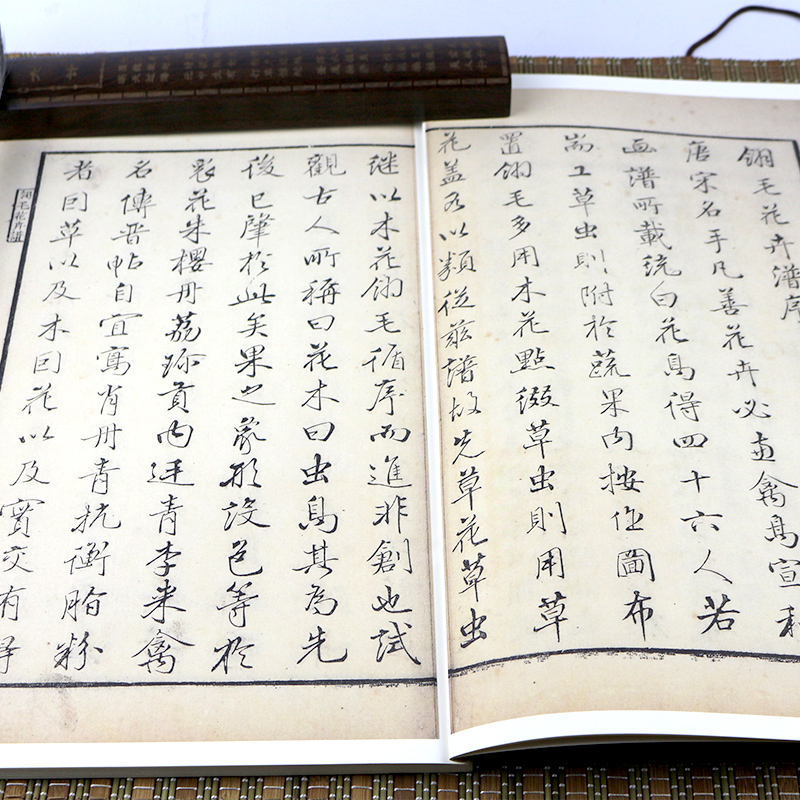 翎毛花卉譜序
唐宋名手凡善花卉必畫禽鳥宣和
画譜所載統曰花鳥得四十六人若
耑工草虫則附於蔬果内按位圖布
置翎毛多用木花點綴草虫則用草
花盖各以類從兹譜故先草花草虫
继以木花翎毛循序而進非創也試
觀古人所稱曰花木曰虫鳥其為先
後已肇於此矣果之象形設色等於
衆花朱櫻丹荔珍貢内廷青李来禽
名傳晋帖自宜寫肖丹青抗衡脂粉
者因草以及木因花以及實交有得
翎毛花卉譜